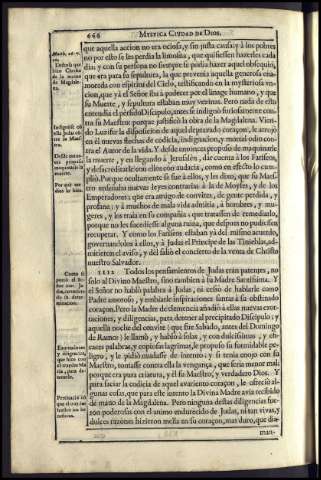 666 MYSTICA CIUDAD DE DIOS.
que aquella accion no era ociosa, y sin justa causa; y à los pobres
no por esso se les perdia la limosna, que quisiessen hazerles cada
dia: y con su persona no siempre se podia hazer aquel obsequio,
que era para su sepultura, la que prevenia aquella generosa ena-
morada con espiritu del Cielo, testificando en la mysteriosa un-
cion, que yà el Señor iba à padecer por el linage humano, y que
su Muerte, y sepultura estaban muy vezinas. Pero nada de esto
entendia el pèrfido Discipulo, antes se indignò furiosamente con-
tra su Maestro porque justificò la obra de la Magdalena. Vien-
do Luzifer la disposicion de aquel depravado coraçon, le arrojò
en èl nuevas flechas de codicia, indignacion, y mortal odio con-
tra el Autor de la vida. Y desde entonces propuso de maquinarle
la muerte, y en llegando à Jerusalèn, dar cuenta à los Fariseos,
y desacreditarle con ellos con audacia, como en efecto lo cum-
pliò. Porque ocultamente se fue à ellos, y les dixo, que su Maes-
tro enseñaba nuevas leyes contrarias à la de Moyses, y de los
Emperadores: que era amigo de combites, de gente perdida, y
profana: y à muchos de mala vida admitia, à hombres, y mu-
geres, y los traia en su compañia: que tratassen de remediarlo,
porque no les sucediesse alguna ruina, que despues no pudiessen
recuperar. Y como los Fariseos estaban yà del mismo acuerdo,
governandolos à ellos, y à Judas el Principe de las Tinieblas, ad-
mitieron el aviso, y del saliò el concierto de la venta de Christo
nuestro Salvador.
1111 Todos los pensamientos de Judas eran patentes, no
solo al Divino Maestro, sino tambien à su Madre Santissima. Y
el Señor no hablò palabra à Judas, ni cessò de hablarle como
Padre amoroso, y embiarle inspiraciones santas à su obstinado
coraçon. Pero la Madre de clemencia añadiò à ellas nuevas exor-
taciones, y diligencias, para detener al precipitado Discipulo: y
aquella noche del convite (que fue Sabado, antes del Domingo
de Ramos) le llamò, y hablò à solas, y con dulcissimas, y efi-
caces palabras, y copiosas lagrimas, le propuso su formidable pe-
ligro, y le pidiò mudasse de intento: y si tenia enojo con su
Maestro, tomasse contra ella la vengança, que seria menor mal:
porque era pura criatura, y èl su Maestro, y verdadero Dios. Y
para saciar la codicia de aquel avariento coraçon, le ofreciò al-
gunas cosas, que para este intento la Divina Madre avia recibido
de mano de la Magdalena. Pero ninguna destas diligencias fue-
ron poderosas con el animo endurecido de Judas, ni tan vivas, y
dulces razones hizieron mella en su coraçon, mas duro, que dia-
man-